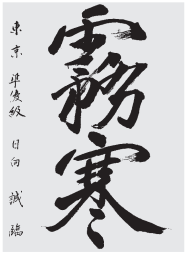 霧寒
東京 準支級 日向 誠 臨